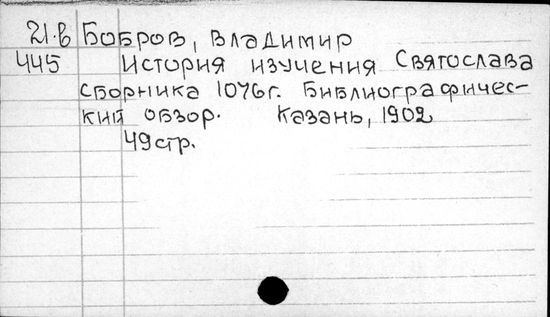 21.в Бобров, Владимир
445 История изучения Святослава
сборника 1076г. Библиографичес-
кий обзор. Казань, 1902
49стр.